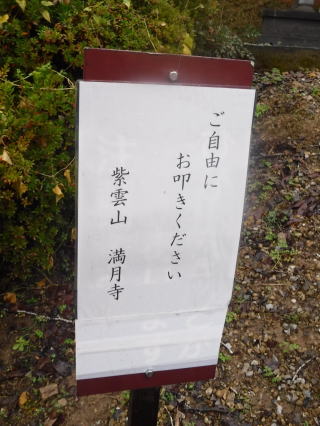 ご自由に
お叩きください
紫雲山 満月寺